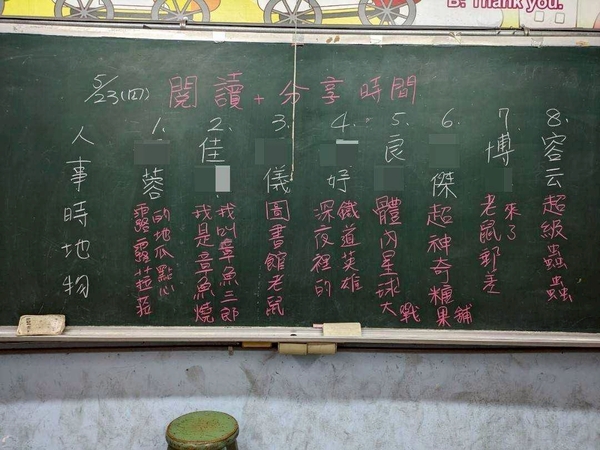 B: Thank you.
5/23(四) 閱讀+分享時間
人事時地物
1.
蓉
露露菈菈
的地瓜點心
2.
佳
我是章魚燒
我叫章魚三郎
3.
儀
圖書館老鼠
4.
妤
深夜裡的
鐵道英雄
5.
良
體內星球大戰
6.
傑
超神奇糖果舖
7.
博
老鼠郵差
來了
8.
容云
超級蟲蟲蟲